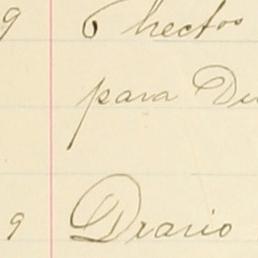 9 6 hectos
para Du
9 Diario